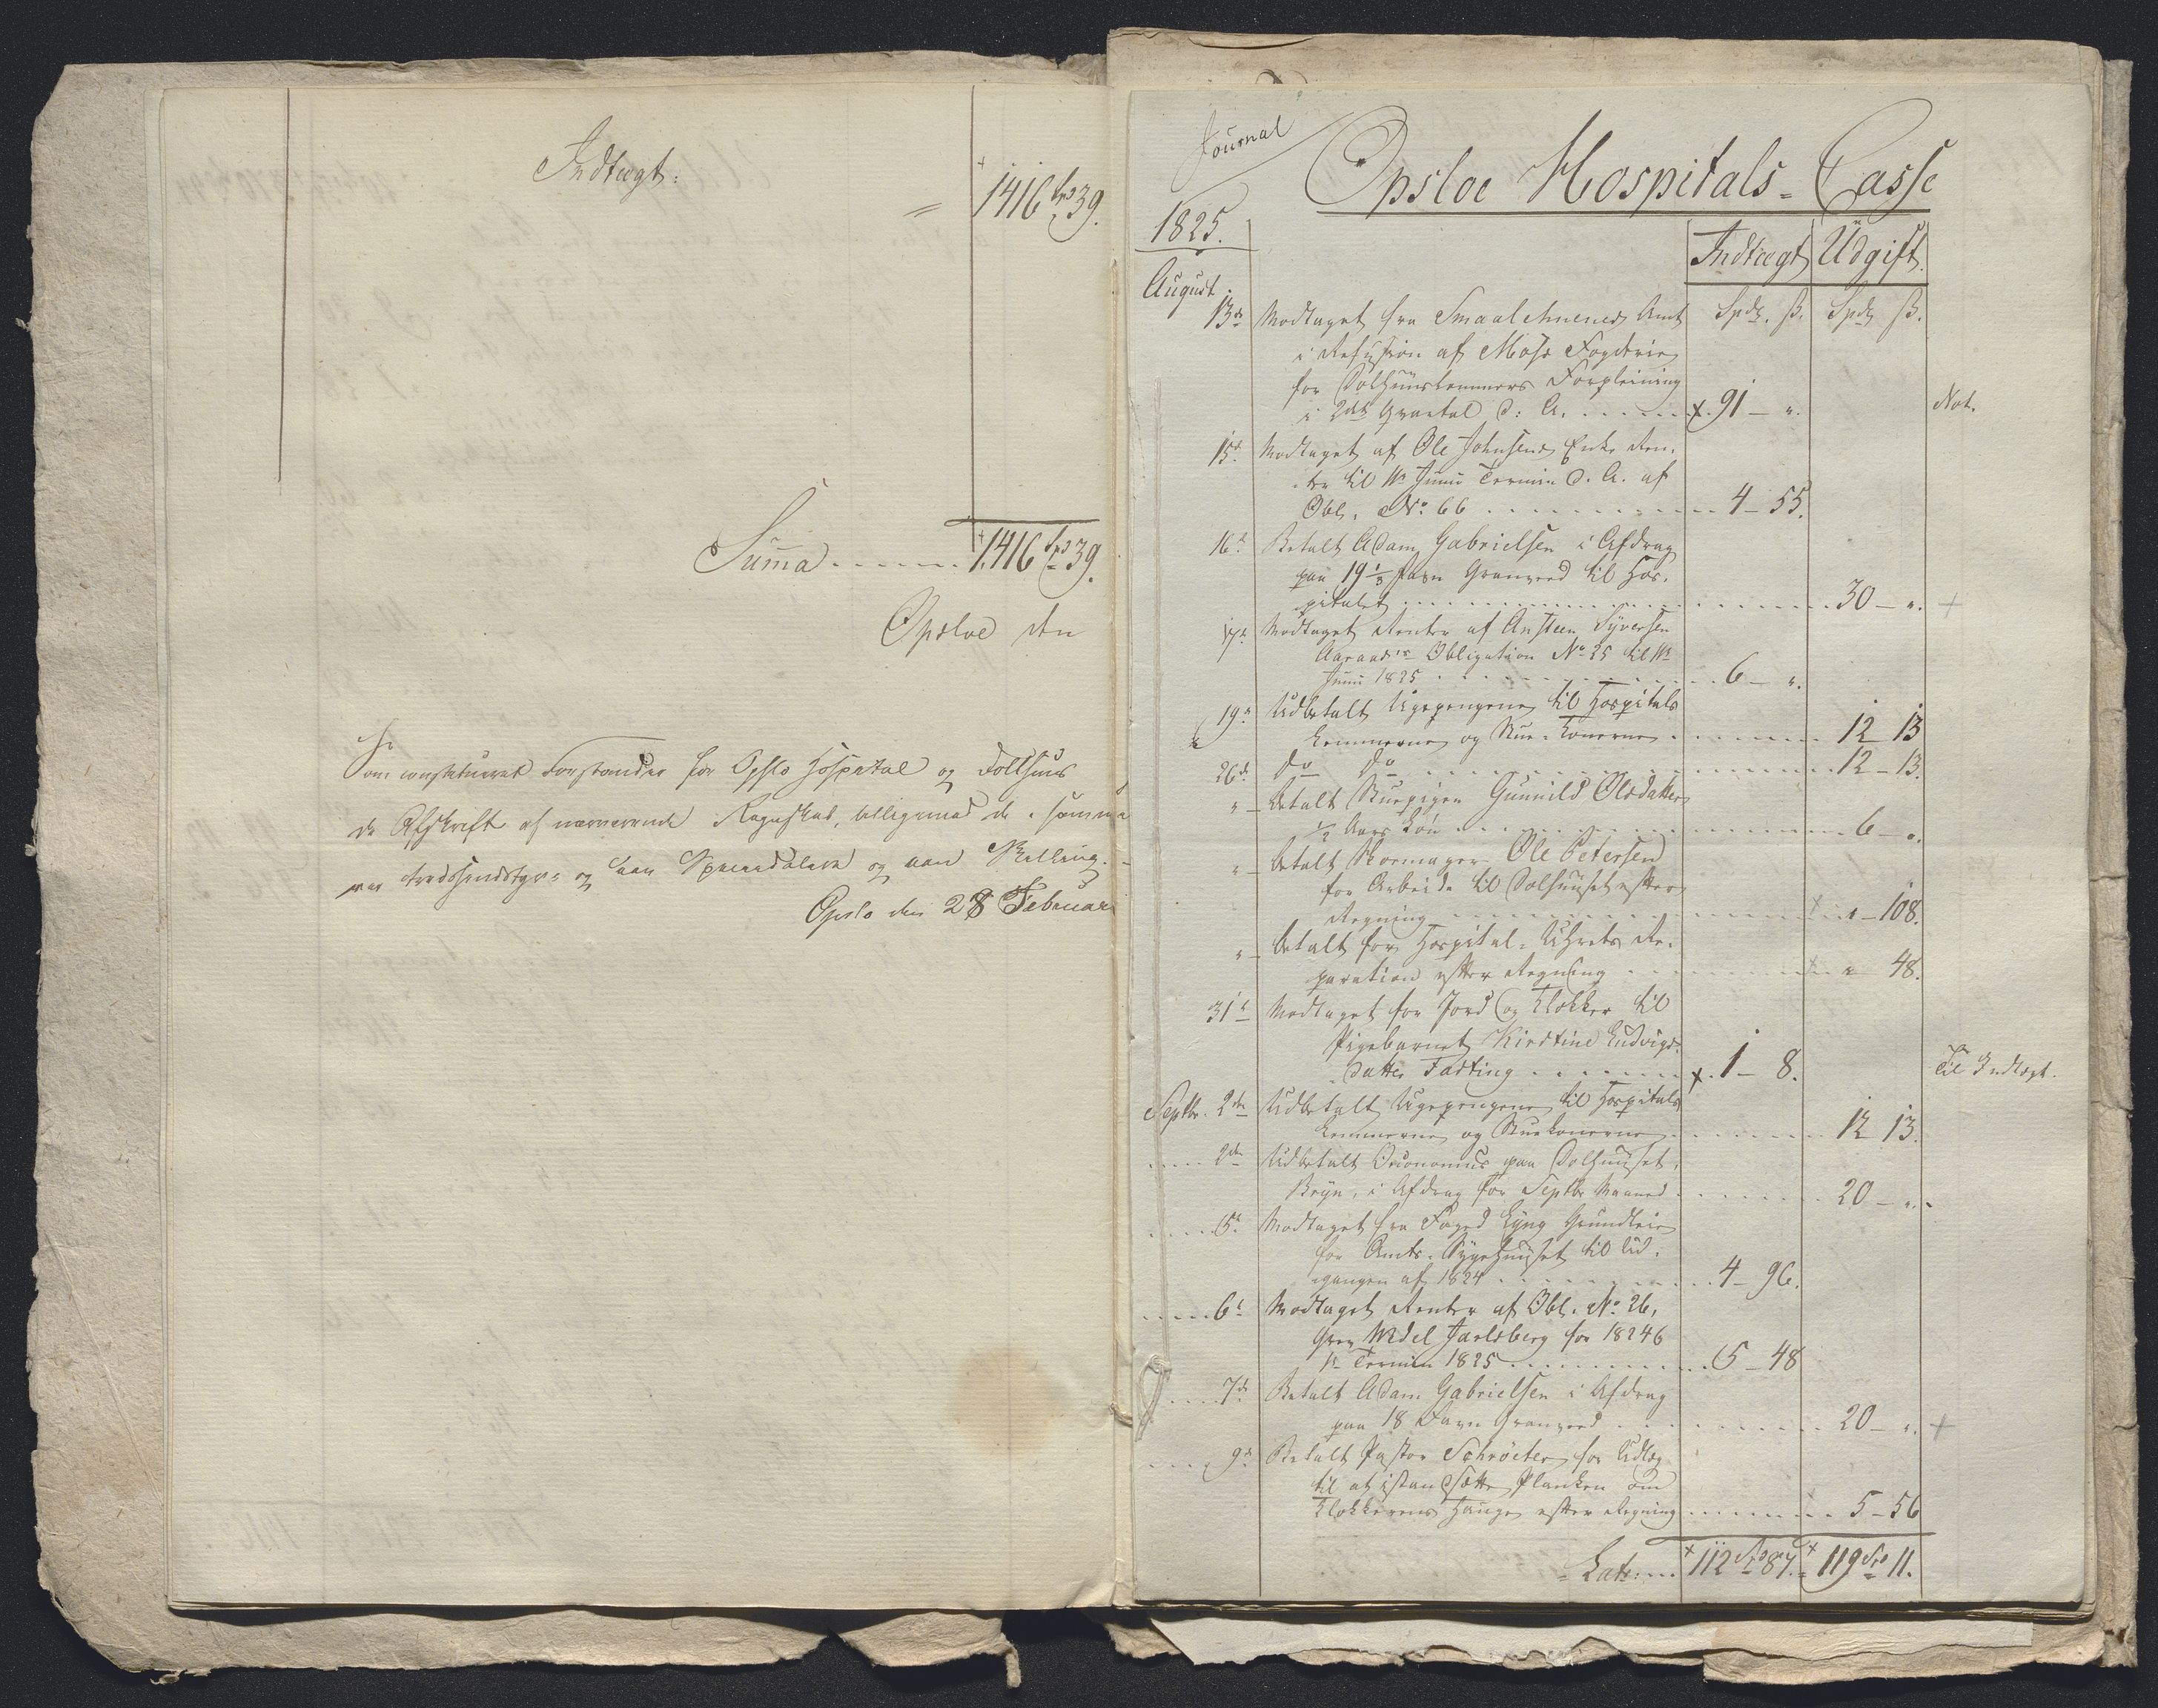 Indtægt:
1416 Spd 39.
Summa . . . . . . 1,416 Spd 39.
Opsloe den
Som constitueret Forstander for Opslo Hospital og Dollhuus
de Afskrift af nærværende Regnskab, tilligemed de i samme
og een Skilling.
Opslo den 28 Februar
Journal
Opsloe Hospitals-Casse
1825.
Indtægt Udgift.
August.
Spdr. ß. Spdr ß.
13de Modtaget fra Smaalehnenes Amt
i Refusion af Moss Fogderie
for Dolhuuslemmers Forpleining
i 2det Qvartal d: A. . . . . . 91 - ".
Not.
15de Modtaget af Ole Johnsens Enke Ren-
ter til 11te Junii Termin d. A. af
Obl. No. 66 . . . . . . . . 4 - 55.
16de Betalt Adam Gabrielsen i Afdrag
paa 19 1/3 Favn Granved til Hos-
pitalet . . . . . . . . 30 - ". +
17de Modtaget Renter af Ansteen Syversen
Aaraas's Obligation No 25 til 11te
Junii 1825 . . . . . . . . 6 - ".
19de Udbetalt Ugepengene til Hospitals
Lemmerne og Stue-Konerne . . . . . 12 13
26de do do . . . . . . . . 12 - 13.
" - Betalt Stuepigen Gunnild Olsdatter
1/2 Aars Løn . . . . . . . . 6 - ".
" - Betalt Skomager Ole Petersen
for Arbeide til Dolhuuset efter
Regning . . . . . . . . " - 108.
" - Betalt for Hospital-Uhrets Re-
paration efter Regning . . . . . " 48.
31te Modtaget for Jord og Klokker til
Pigebarnet Kirstine Ludvigs-
datter Fasting . . . . . . . 1 - 8.
Til Indtægt.
Septbr. 2den Udbetalt Ugepengene til Hospitals
Lemmerne og Stuekonerne . . . . . 12 13.
. . . . 2den Udbetalt Oeconomus paa Dolhuuset,
Bryn, i Afdrag for Septbr Maaned . . . . 20 - ".
. . . . 5te Modtaget fra Foged Lyng Grundleie
for Amts-Sygehuuset til Ud-
gangen af 1824 . . . . . . . 4 - 96.
. . . . 6te Modtaget Renter af Obl. No. 26,
Grev Wedel Jarlsberg for 1824 6
11te Termin 1825 . . . . . . . 5 - 48
. . . . 7de Betalt Adam Gabrielsen i Afdrag
paa 18 Favn Granved . . . . . . 20 - ". +
. . . . 9de Betalt Pastor Schrøeter for Udlæg
til at istandsætte Planken om
Klokkerens Hauge efter Regning . . . . . 5 - 56
Lats: . . . 112 Spd 87. 119 Spd 11.